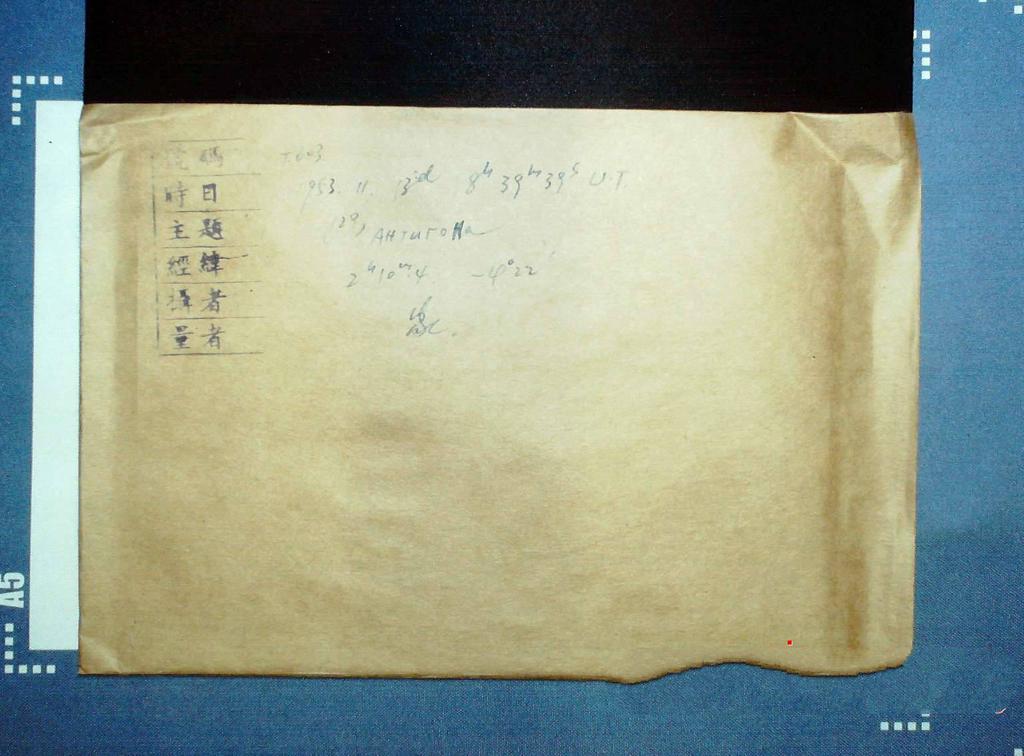 號碼 T.603
時日 1953. 11. 3d 8h 39m 39s U.T.
主題 (29) Антигона
經緯 2h 10m.4 -4°22'
攝者
量者
A5